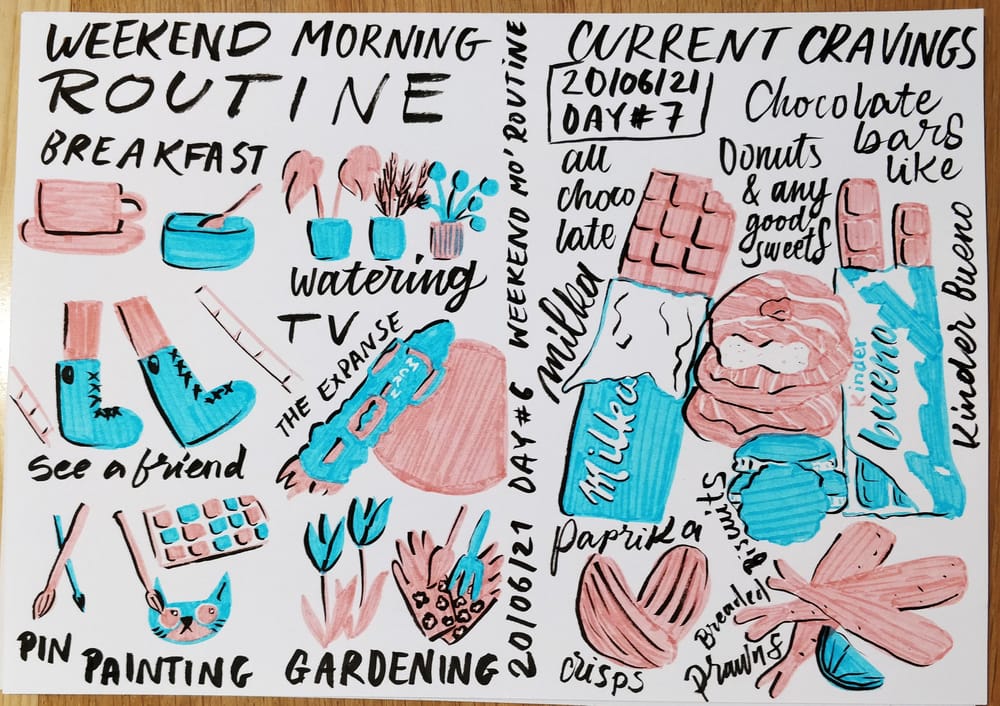 WEEKEND MORNING
ROUTINE
BREAKFAST
watering
TV
THE EXPANSE
MCRN
see a friend
PIN PAINTING
GARDENING
20/06/21 DAY #6 WEEKEND MO' ROUTINE
CURRENT CRAVINGS
20/06/21
DAY #7
Chocolate
bars
like
Kinder Bueno
all
choco
late
milka
Donuts
& any
good
sweets
Milka
kinder
bueno
Biscuits
Paprika
crisps
Breaded
prawns